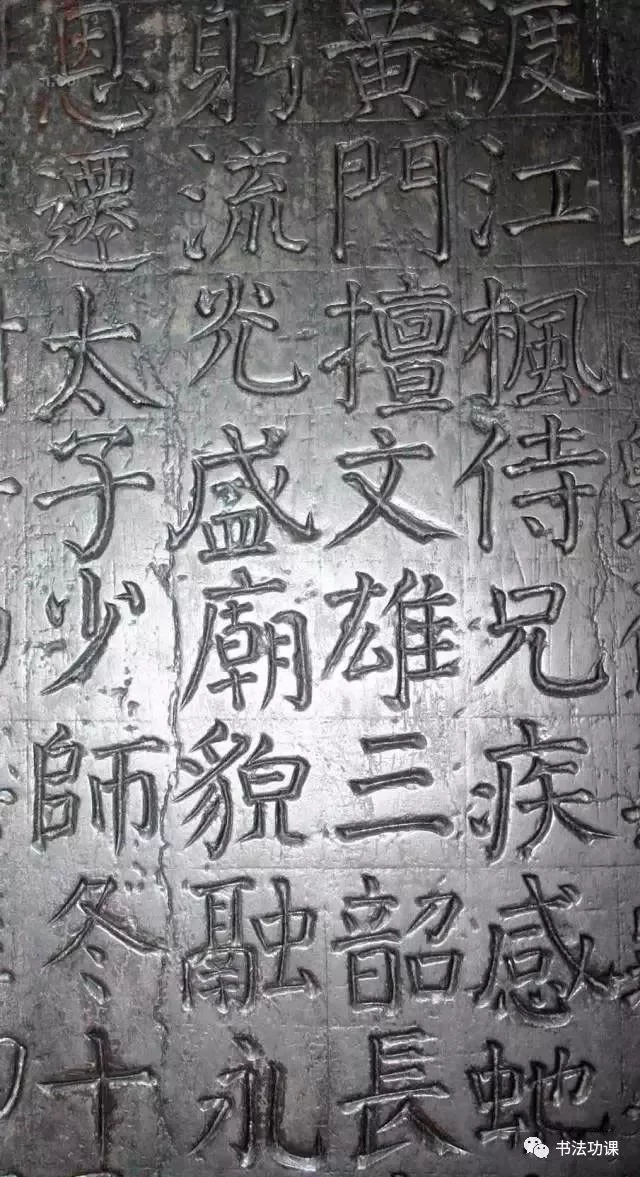 渡江楓侍兄疾感虵
黄門擅文雄三韶長
躬流光盛廟貌融永
恩遷太子少師冬十
书法功课